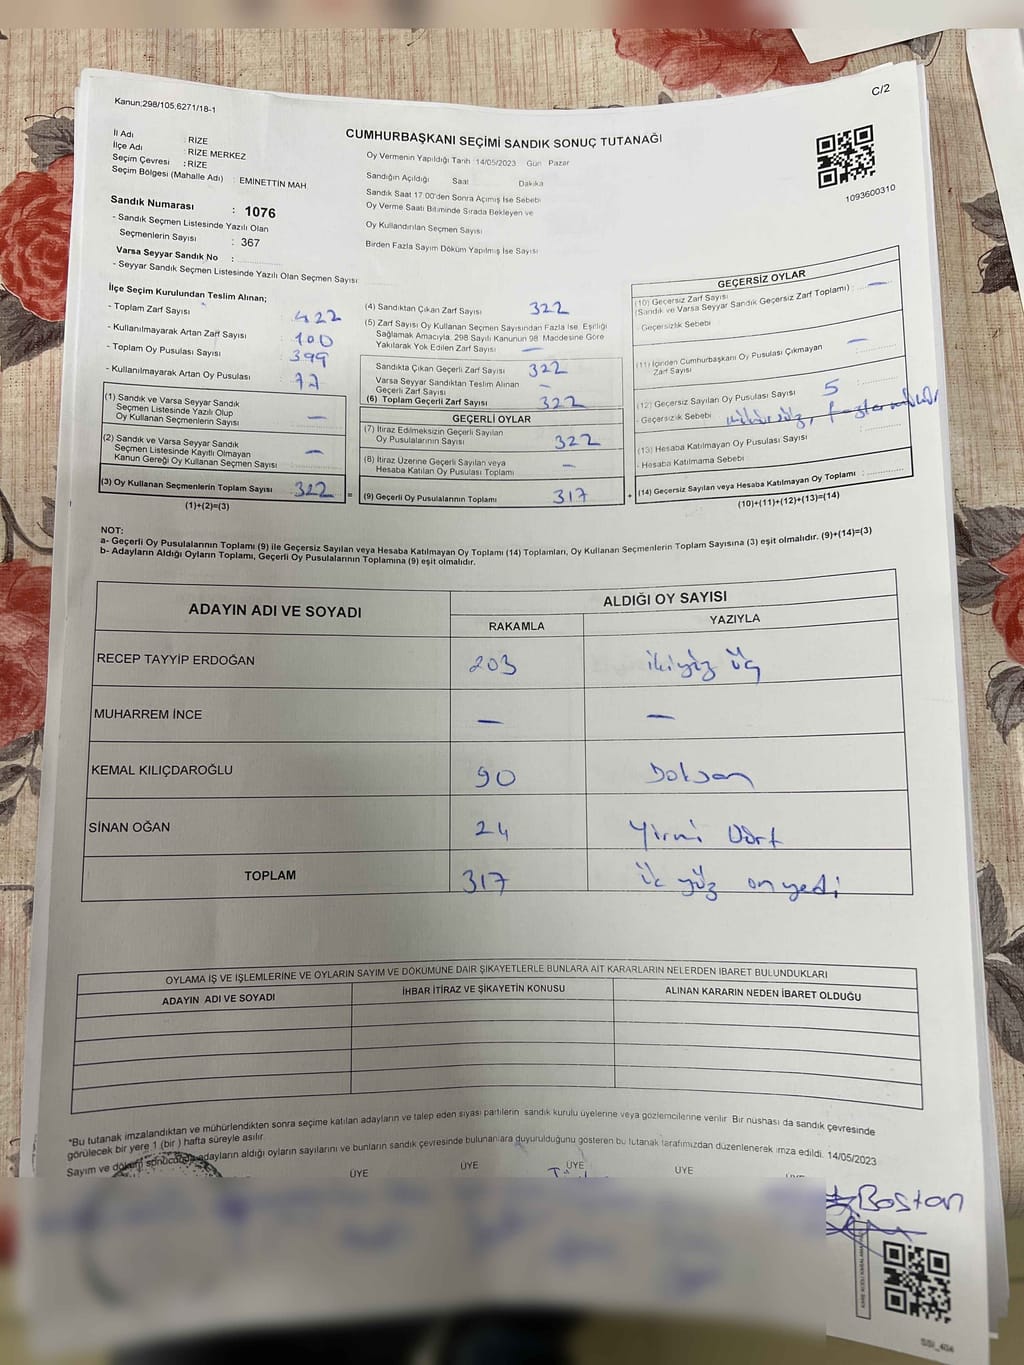 Kanun;298/105,6271/18-1
C/2
CUMHURBAŞKANI SEÇİMİ SANDIK SONUÇ TUTANAĞI
İl Adı : RİZE
İlçe Adı : RİZE MERKEZ
Seçim Çevresi : RİZE
Seçim Bölgesi (Mahalle Adı) : EMINETTİN MAH
Sandık Numarası : 1076
- Sandık Seçmen Listesinde Yazılı Olan
Seçmenlerin Sayısı : 367
Varsa Seyyar Sandık No :
- Seyyar Sandık Seçmen Listesinde Yazılı Olan Seçmen Sayısı
Oy Vermenin Yapıldığı Tarih 14/05/2023 Gün Pazar
Sandığın Açıldığı Saat Dakika
Sandık Saat 17 00'den Sonra Açımış İse Sebebi
Oy Verme Saati Bitiminde Sırada Bekleyen ve
Oy Kullandırılan Seçmen Sayısı
Birden Fazla Sayım Döküm Yapılmış İse Sayısı
1093600310
İlçe Seçim Kurulundan Teslim Alınan;
- Toplam Zarf Sayısı : 422
- Kullanılmayarak Artan Zarf Sayısı : 100
- Toplam Oy Pusulası Sayısı : 399
- Kullanılmayarak Artan Oy Pusulası : 77
(1) Sandık ve Varsa Seyyar Sandık
Seçmen Listesinde Yazılı Olup
Oy Kullanan Seçmenlerin Sayısı : —
(2) Sandık ve Varsa Seyyar Sandık
Seçmen Listesinde Kayıtlı Olmayan
Kanun Gereği Oy Kullanan Seçmen Sayısı : —
(3) Oy Kullanan Seçmenlerin Toplam Sayısı : 322 =
(1)+(2)=(3)
(4) Sandıktan Çıkan Zarf Sayısı : 322
(5) Zarf Sayısı Oy Kullanan Seçmen Sayısından Fazla İse, Eşitliği
Sağlamak Amacıyla, 298 Sayılı Kanunun 98. Maddesine Göre
Yakılarak Yok Edilen Zarf Sayısı : —
Sandıkta Çıkan Geçerli Zarf Sayısı : 322
Varsa Seyyar Sandıktan Teslim Alınan
Geçerli Zarf Sayısı : —
(6) Toplam Geçerli Zarf Sayısı : 322
GEÇERLİ OYLAR
(7) İtiraz Edilmeksizin Geçerli Sayılan
Oy Pusulalarının Sayısı : 322
(8) İtiraz Üzerine Geçerli Sayılan veya
Hesaba Katılan Oy Pusulası Toplamı : —
(9) Geçerli Oy Pusulalarının Toplamı : 317 +
GEÇERSİZ OYLAR
(10) Geçersiz Zarf Sayısı
(Sandık ve Varsa Seyyar Sandık Geçersiz Zarf Toplamı) : —
- Geçersizlik Sebebi
(11) İçinden Cumhurbaşkanı Oy Pusulası Çıkmayan
Zarf Sayısı : —
(12) Geçersiz Sayılan Oy Pusulası Sayısı : 5
- Geçersizlik Sebebi
(13) Hesaba Katılmayan Oy Pusulası Sayısı
- Hesaba Katılmama Sebebi
(14) Geçersiz Sayılan veya Hesaba Katılmayan Oy Toplamı :
(10)+(11)+(12)+(13)=(14)
NOT:
a- Geçerli Oy Pusulasının Toplamı (9) ile Geçersiz Sayılan veya Hesaba Katılmayan Oy Toplamı (14) Toplamları, Oy Kullanan Seçmenlerin Toplam Sayısına (3) eşit olmalıdır. (9)+(14)=(3)
b- Adayların Aldığı Oyların Toplamı, Geçerli Oy Pusulalarının Toplamına (9) eşit olmalıdır.
ADAYIN ADI VE SOYADI
ALDIĞI OY SAYISI
RAKAMLA YAZIYLA
RECEP TAYYİP ERDOĞAN 203 ikiyüz üç
MUHARREM İNCE — —
KEMAL KILIÇDAROĞLU 90 Doksan
SİNAN OĞAN 24 Yirmi Dört
TOPLAM 317 üç yüz on yedi
OYLAMA İŞ VE İŞLEMLERİNE VE OYLARIN SAYIM VE DÖKÜMÜNE DAİR ŞİKAYETLERLE BUNLARA AİT KARARLARIN NELERDEN İBARET BULUNDUKLARI
ADAYIN ADI VE SOYADI İHBAR İTİRAZ VE ŞİKAYETİN KONUSU ALINAN KARARIN NEDEN İBARET OLDUĞU
*Bu tutanak imzalandıktan ve mühürlendikten sonra seçime katılan adayların ve talep eden siyasi partilerin sandık kurulu üyelerine veya gözlemcilerine verilir. Bir nüshası da sandık çevresinde
görülecek bir yere 1 (bir) hafta süreyle asılır.
Sayım ve döküm sonucunda adayların aldığı oyların sayılarını ve bunların sandık çevresinde bulunanlara duyurulduğunu gösteren bu tutanak tarafımızdan düzenlenerek imza edildi. 14/05/2023
ÜYE ÜYE ÜYE ÜYE ÜYE
Bostan